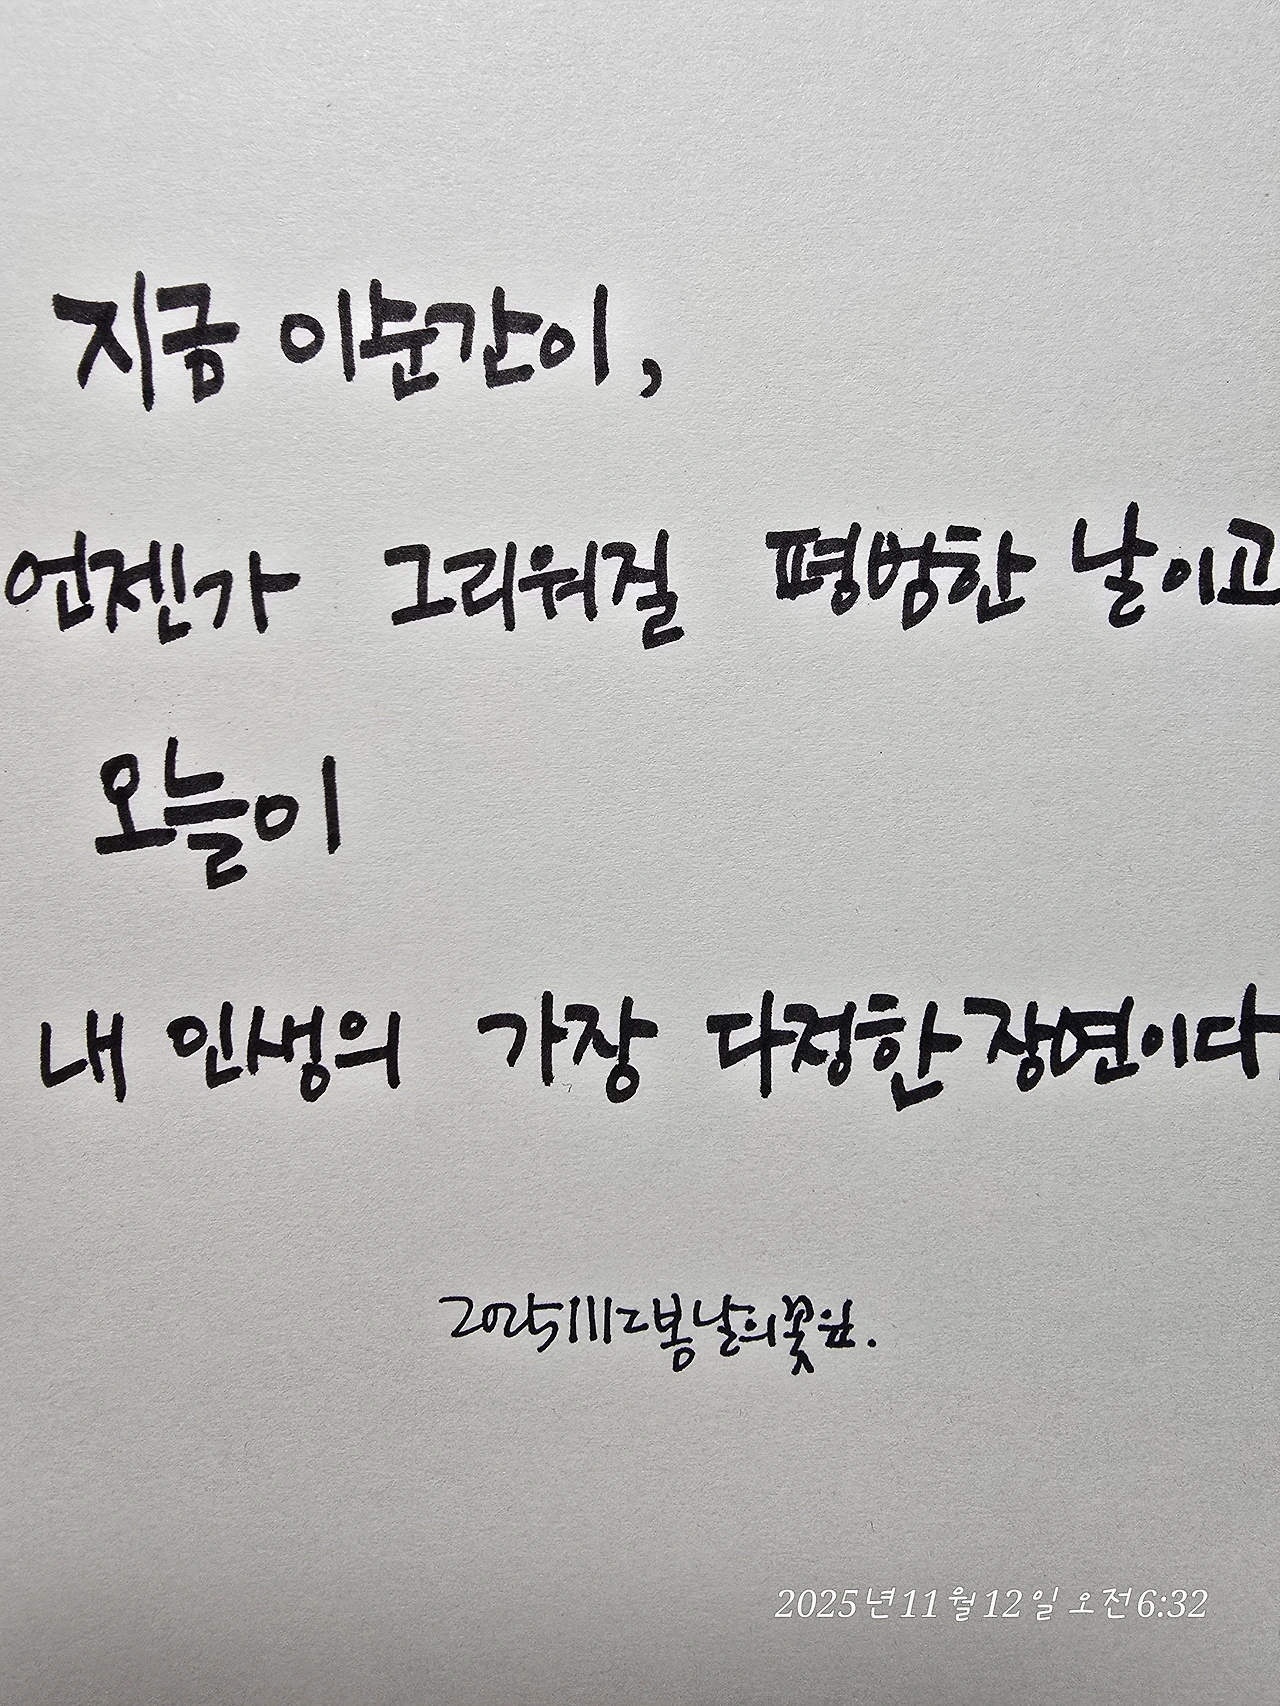 지금 이순간이,
언젠가 그리워질 평범한 날이고
오늘이
내 인생의 가장 다정한 장면이다.
20251112봄날의꽃잎.
2025년 11월 12일 오전 6:32